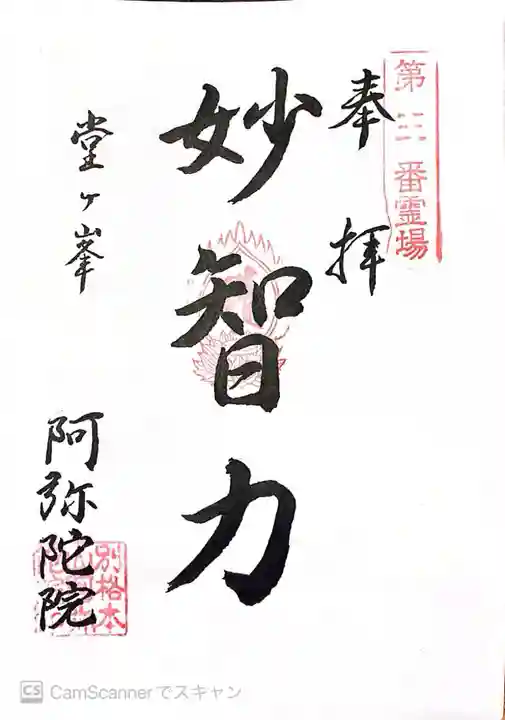 第三番霊場
奉拝
妙智力
堂ヶ峯
阿弥陀院
別格本
CS CamScannerでスキャン